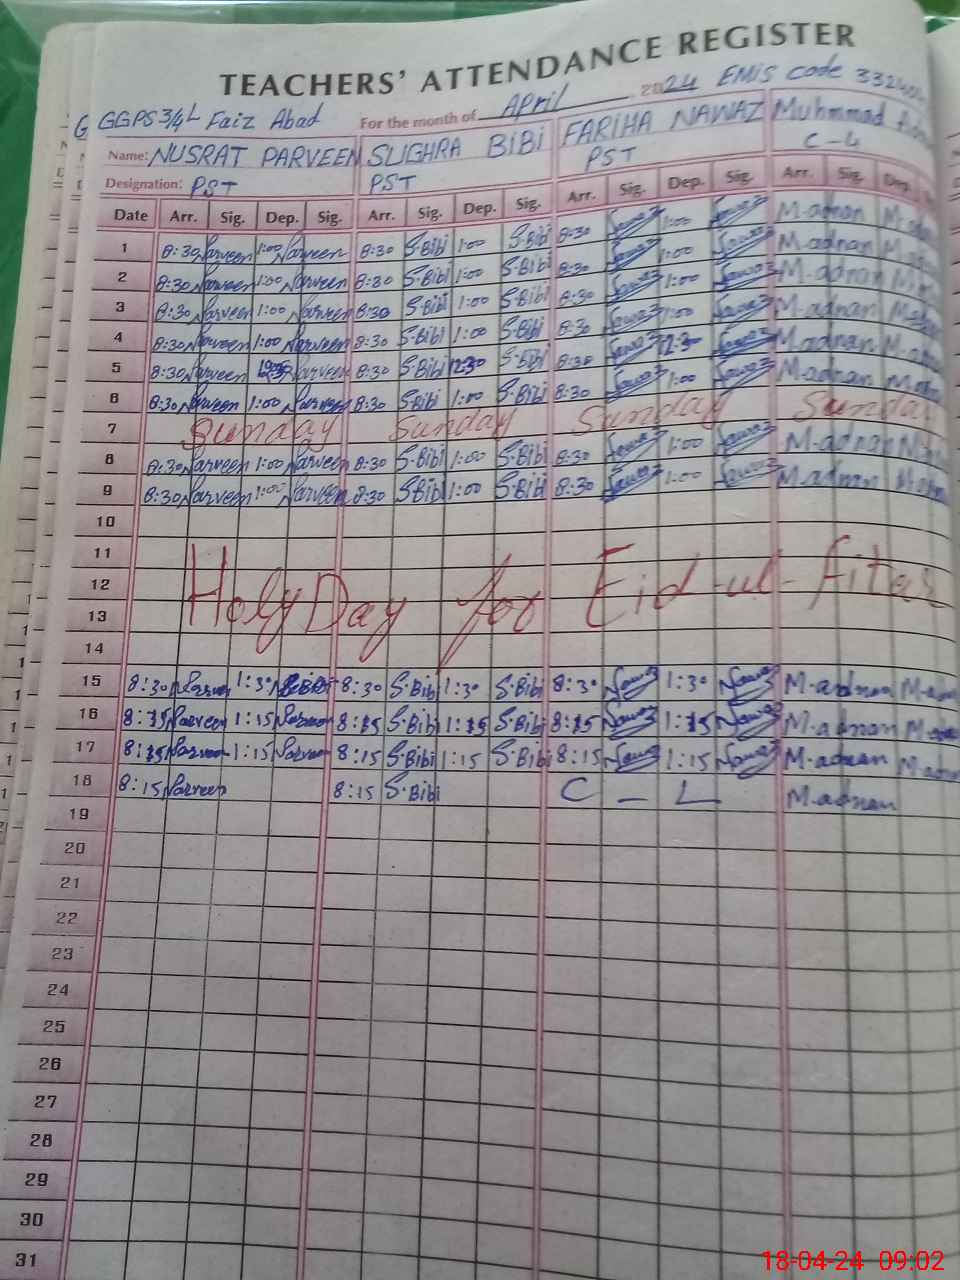 TEACHERS' ATTENDANCE REGISTER
GGPS 3/4L Faiz Abad For the month of April 2024 EMIS code
Name: NUSRAT PARVEEN SUGHRA BIBI FARIHA NAWAZ Muhmmad
Designation: PST PST PST C-4
Date Arr. Sig. Dep. Sig. Arr. Sig. Dep. Sig. Arr. Sig. Dep. Sig. Arr. Sig. Dep.
1 8:30 Parveen 1:00 Parveen 8:30 S.Bibi 1:00 S.Bibi 8:30 Nawaz 1:00 Nawaz M.adnan
2 8:30 Parveen 1:00 Parveen 8:30 S.Bibi 1:00 S.Bibi 8:30 Nawaz 1:00 Nawaz M.adnan
3 8:30 Parveen 1:00 Parveen 8:30 S.Bibi 1:00 S.Bibi 8:30 Nawaz 1:00 Nawaz M.adnan
4 8:30 Parveen 1:00 Parveen 8:30 S.Bibi 1:00 S.Bibi 8:30 Nawaz 1:00 Nawaz M.adnan
5 8:30 Parveen Parveen 8:30 S.Bibi 12:30 S.Bibi 8:30 Nawaz 12:30 Nawaz M.adnan
6 8:30 Parveen 1:00 Parveen 8:30 S.Bibi 1:00 S.Bibi 8:30 Nawaz 1:00 Nawaz M.adnan
7 Sunday Sunday Sunday Sunday
8 8:30 Parveen 1:00 Parveen 8:30 S.Bibi 1:00 S.Bibi 8:30 Nawaz 1:00 Nawaz M.adnan
9 8:30 Parveen 1:00 Parveen 8:30 S.Bibi 1:00 S.Bibi 8:30 Nawaz 1:00 Nawaz M.adnan
10
11
12 Holy Day for Eid-ul-Fitar
13
14
15 8:30 Parveen 1:30 8:30 S.Bibi 1:30 S.Bibi 8:30 Nawaz 1:30 Nawaz M.adnan
16 8:15 Parveen 1:15 Parveen 8:15 S.Bibi 1:15 S.Bibi 8:15 Nawaz 1:15 Nawaz M.adnan
17 8:15 Parveen 1:15 Parveen 8:15 S.Bibi 1:15 S.Bibi 8:15 Nawaz 1:15 Nawaz M.adnan
18 8:15 Parveen 8:15 S.Bibi C - L M.adnan
19
20
21
22
23
24
25
26
27
28
29
30
31
18-04-24 09:02